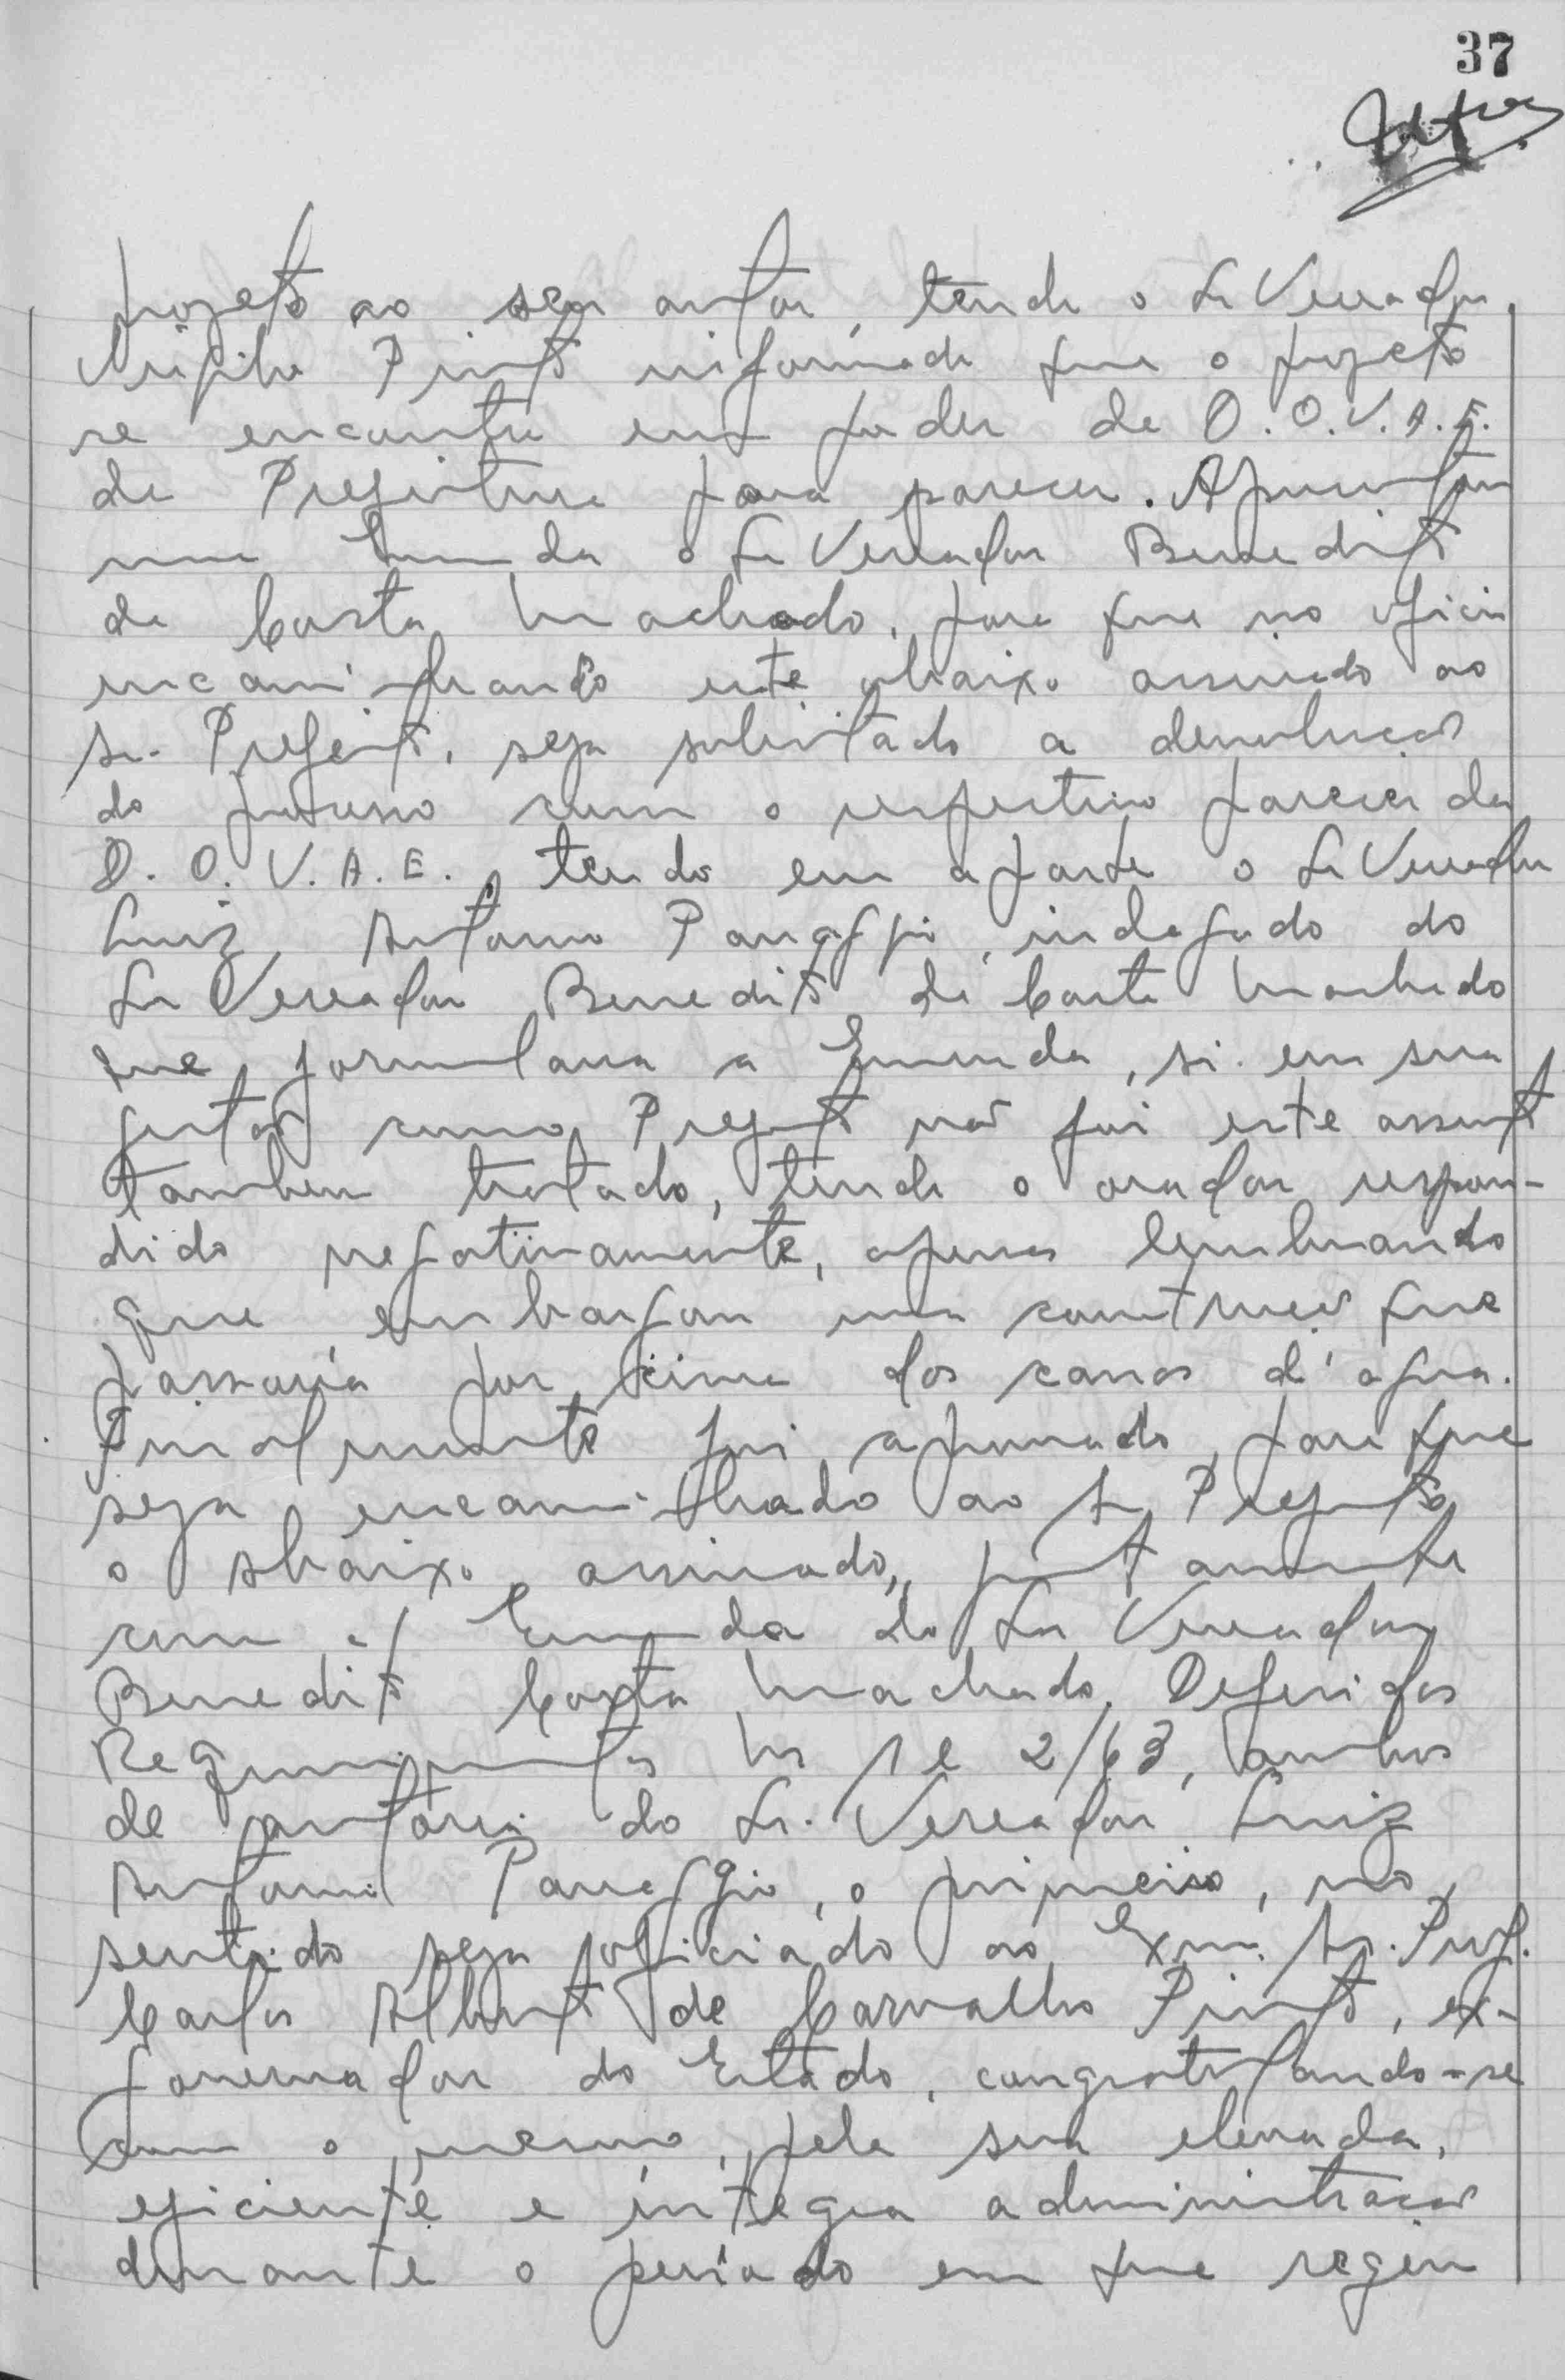 37
projeto ao seu autor, tendo o Sr Vereador
Pinto informado que o projeto
se encontra em poder de D.O.V.A.E.
da Prefeitura para parecer. Apresentou
uma Emenda o Sr Vereador Benedito
da Costa Machado, para que no oficio
encaminhando este abaixo assinado ao
Sr. Prefeito, seja solicitado a devolução
do processo com o respectivo parecer da
D.O.V.A.E., tendo em aparte o Sr Vereador
Luiz Antonio Panaggio, indagado do
Sr Vereador Benedito da Costa Machado
que formulara a Emenda, si em sua
gestão como Prefeito não foi este assunto
tambem tratado, tendo o orador respon-
dido negativamente, apenas lembrando
que embargou uma construção que
passaria por cima dos canos d'agua.
Finalmente foi aprovado, para que
seja encaminhado ao Sr Prefeito
o abaixo assinado, juntamente
com a Emenda do Sr Vereador
Benedito Costa Machado. Deferidos
Requerimentos Ns 1 e 2/63, ambos
de autoria do Sr. Vereador Luiz
Antonio Panaggio, o primeiro, no
sentido seja oficiado ao Exmo. Sr. Prof.
Carlos Alberto de Carvalho Pinto, ex-
governador do Estado, congratulando-se
com o mesmo, pela sua elevada,
eficiente e íntegra administração
durante o período em que regeu